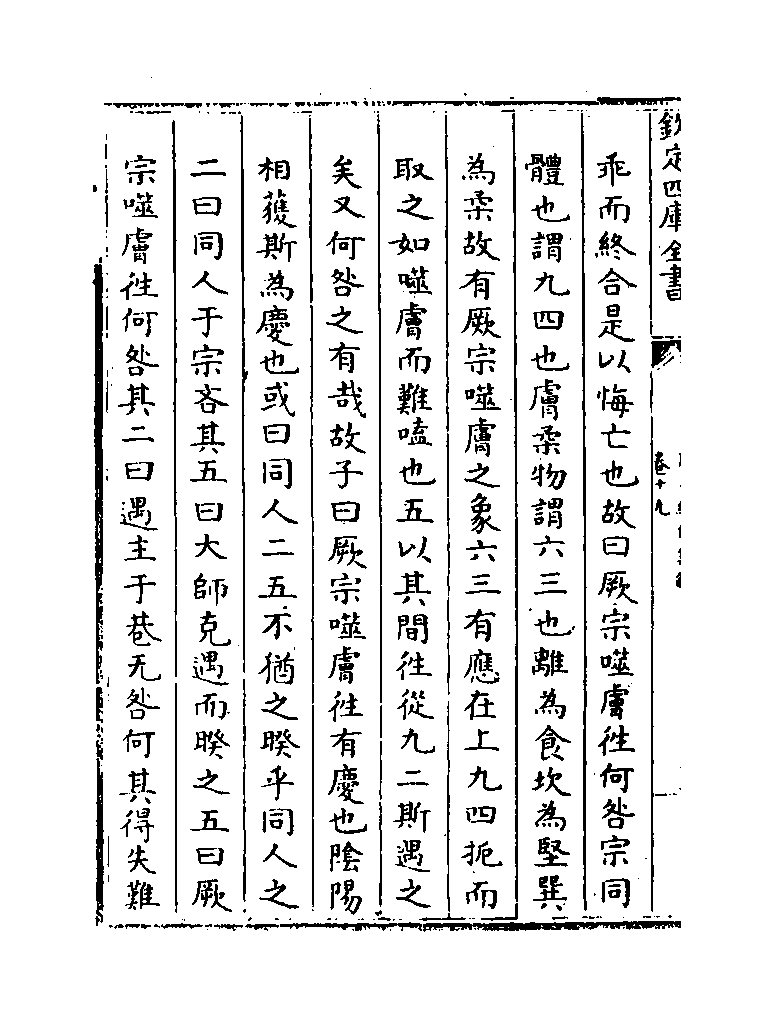 欽定四庫全書
卷十九
乖而終合是以悔亡也故曰厥宗噬膚徃何咎宗同
體也謂九四也膚柔物謂六三也離為食坎為堅巽
為柔故有厥宗噬膚之象六三有應在上九四扼而
取之如噬膚而難嗑也五以其間徃從九二斯遇之
矣又何咎之有哉故子曰厥宗噬膚徃有慶也陰陽
相獲斯為慶也或曰同人二五不猶之睽乎同人之
二曰同人于宗吝其五曰大師克遇而睽之五曰厥
宗噬膚徃何咎其二曰遇主于巷无咎何其得失難